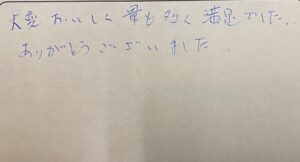 大変おいしく量も多く満足でした。
ありがとうございました。